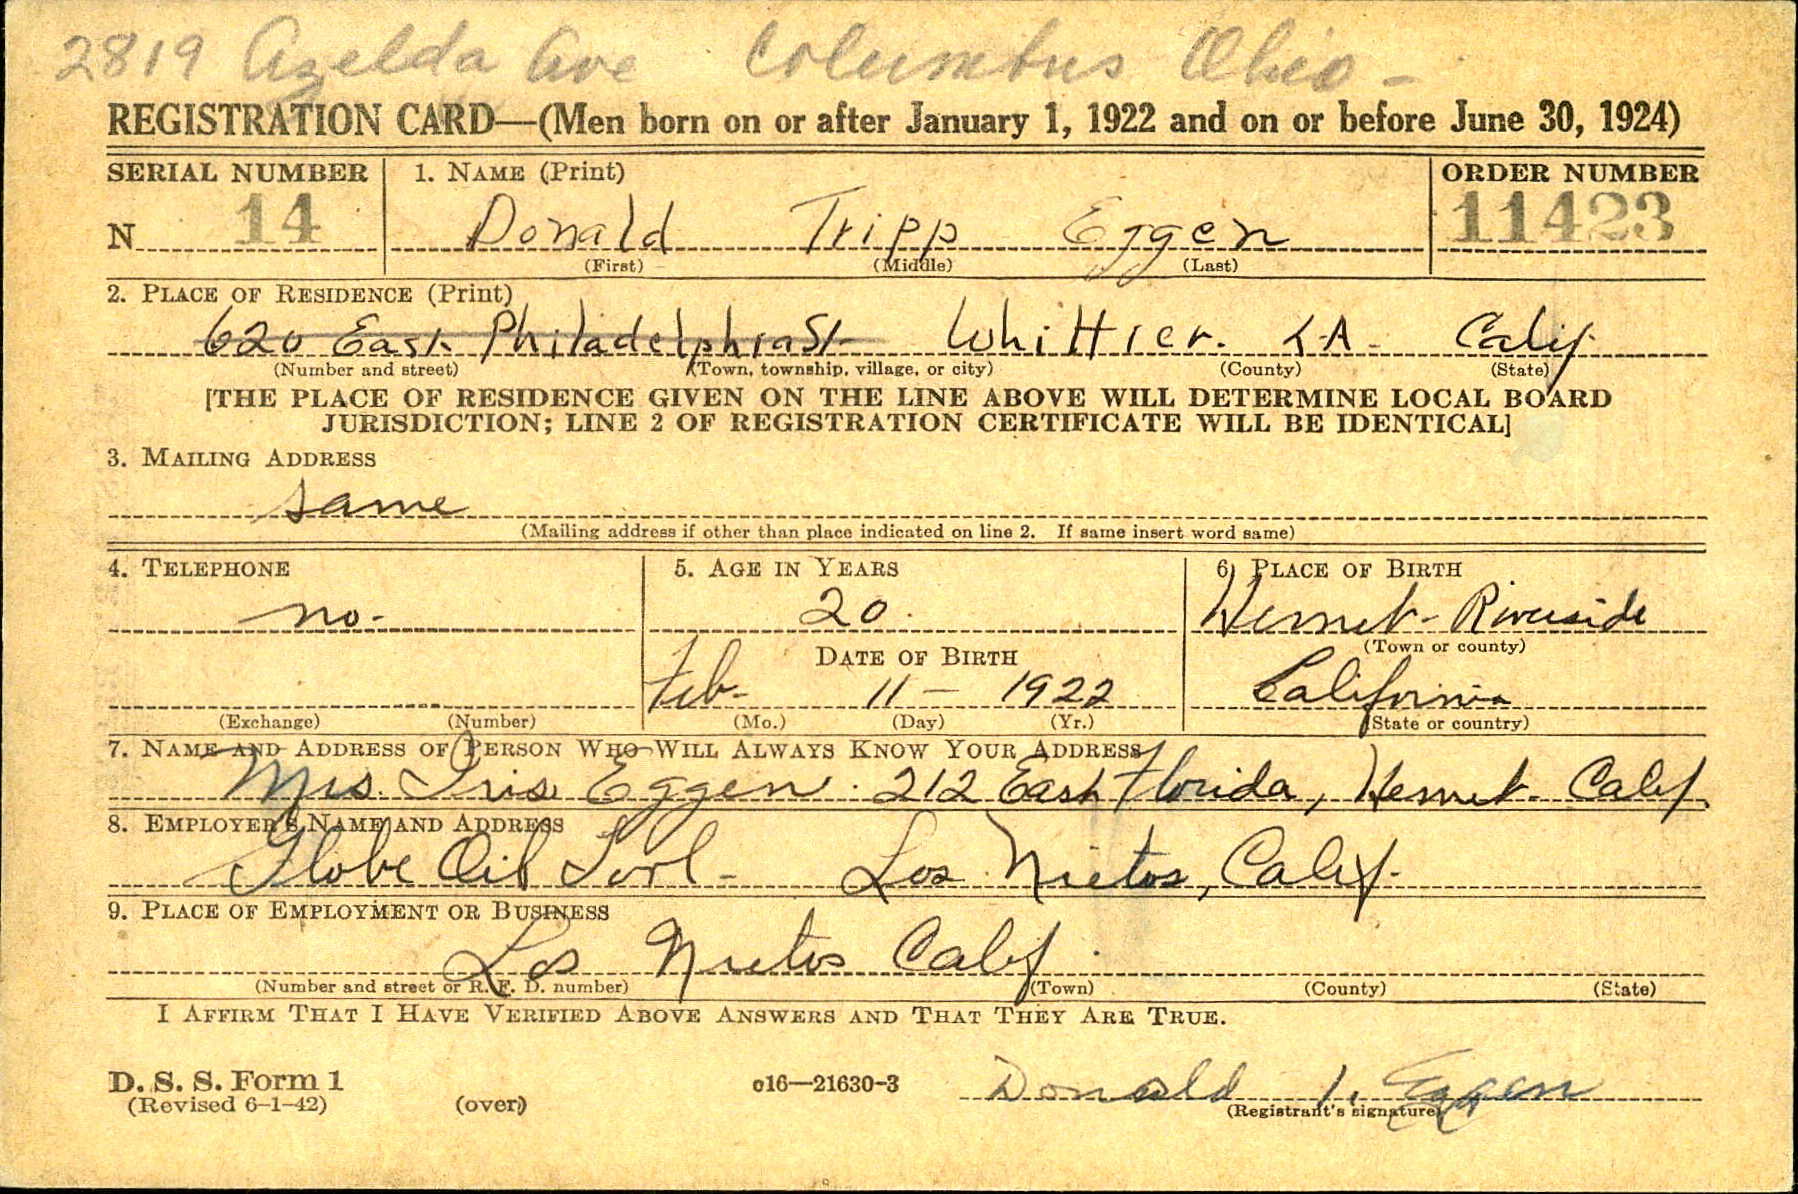 2819 Azelda Ave Columbus Ohio -
REGISTRATION CARD—(Men born on or after January 1, 1922 and on or before June 30, 1924)
SERIAL NUMBER 1. NAME (Print) ORDER NUMBER
N 14 Donald Tripp Eggen 11423
(First) (Middle) (Last)
2. PLACE OF RESIDENCE (Print)
620 East Philadelphia St Whittier. LA - Calif.
(Number and street) (Town, township, village, or city) (County) (State)
[THE PLACE OF RESIDENCE GIVEN ON THE LINE ABOVE WILL DETERMINE LOCAL BOARD
JURISDICTION; LINE 2 OF REGISTRATION CERTIFICATE WILL BE IDENTICAL]
3. MAILING ADDRESS
same
(Mailing address if other than place indicated on line 2. If same insert word same)
4. TELEPHONE 5. AGE IN YEARS 6. PLACE OF BIRTH
no. 20. Hemet - Riverside
(Town or county)
DATE OF BIRTH
Feb - 11 - 1922 California
(Exchange) (Number) (Mo.) (Day) (Yr.) (State or country)
7. NAME AND ADDRESS OF PERSON WHO WILL ALWAYS KNOW YOUR ADDRESS
Mrs. Iris Eggen. 212 East Florida, Hemet - Calif
8. EMPLOYER'S NAME AND ADDRESS
Globe Oil Tool - Los Nietos, Calif.
9. PLACE OF EMPLOYMENT OR BUSINESS
Los Nietos Calif.
(Number and street or R. F. D. number) (Town) (County) (State)
I AFFIRM THAT I HAVE VERIFIED ABOVE ANSWERS AND THAT THEY ARE TRUE.
D. S. S. Form 1
(Revised 6-1-42) (over) c16—21630-3 Donald T. Eggen
(Registrant's signature)